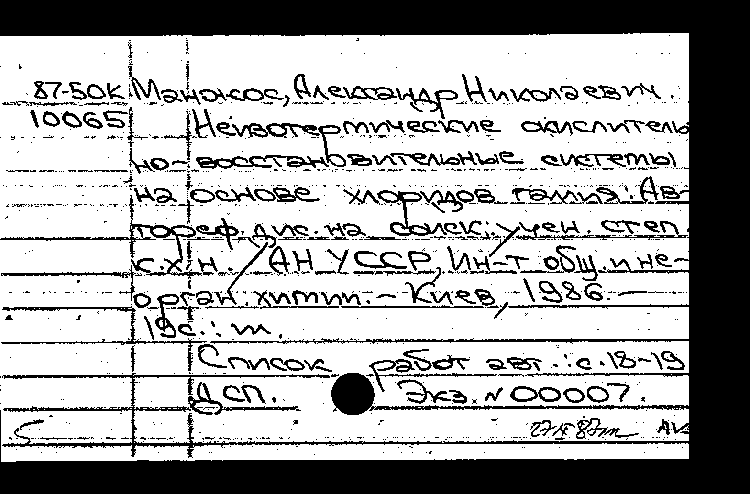 87-50к Манжос, Александр Николаевич.
10065 Неизотермические окислитель
но-восстановительные системы
на основе хлоридов галлия: Ав-
тореф. дис. на соиск. учен. степ.
к.х.н. / АН УССР, Ин-т общ. и не-
орган. химии. - Киев, 1986. -
19с.: ил.
Список работ авт.: с.18-19
ДСП. Экз. N 00007.